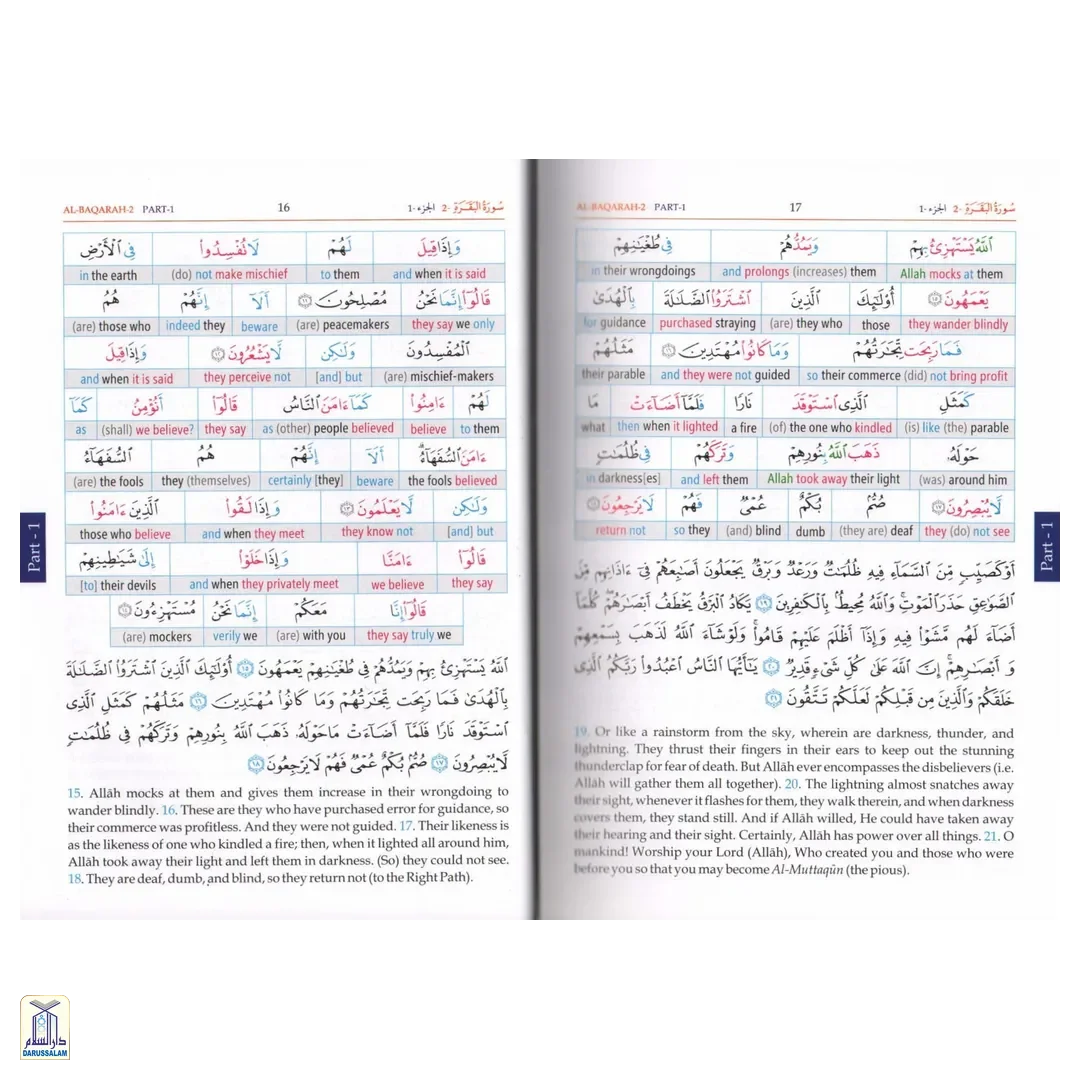 AL-BAQARAH-2 PART-1 16 سُورَةُ البَقَرَةِ -2 الجزء -1
وَإِذَا قِيلَ لَهُمْ لَا تُفْسِدُوا۟ فِى ٱلْأَرْضِ
and when it is said to them (do) not make mischief in the earth
قَالُوٓا۟ إِنَّمَا نَحْنُ مُصْلِحُونَ ١١ أَلَآ إِنَّهُمْ هُمُ
they say we only (are) peacemakers beware indeed they (are) those who
ٱلْمُفْسِدُونَ وَلَـٰكِن لَّا يَشْعُرُونَ ١٢ وَإِذَا قِيلَ
(are) mischief-makers [and] but they perceive not and when it is said
لَهُمْ ءَامِنُوا۟ كَمَآ ءَامَنَ ٱلنَّاسُ قَالُوٓا۟ أَنُؤْمِنُ كَمَآ
to them believe as (other) people believed they say (shall) we believe? as
ءَامَنَ ٱلسُّفَهَآءُ ۗ أَلَآ إِنَّهُمْ هُمُ ٱلسُّفَهَآءُ
the fools believed beware certainly [they] they (themselves) (are) the fools
وَلَـٰكِن لَّا يَعْلَمُونَ ١٣ وَإِذَا لَقُوا۟ ٱلَّذِينَ ءَامَنُوا۟
[and] but they know not and when they meet those who believe
قَالُوٓا۟ ءَامَنَّا وَإِذَا خَلَوْا۟ إِلَىٰ شَيَـٰطِينِهِمْ
they say we believe and when they privately meet [to] their devils
قَالُوٓا۟ إِنَّا مَعَكُمْ إِنَّمَا نَحْنُ مُسْتَهْزِءُونَ ١٤
they say truly we (are) with you verily we (are) mockers
ٱللَّهُ يَسْتَهْزِئُ بِهِمْ وَيَمُدُّهُمْ فِى طُغْيَـٰنِهِمْ يَعْمَهُونَ ١٥ أُو۟لَـٰٓئِكَ ٱلَّذِينَ ٱشْتَرَوُا۟ ٱلضَّلَـٰلَةَ
بِٱلْهُدَىٰ فَمَا رَبِحَت تِّجَـٰرَتُهُمْ وَمَا كَانُوا۟ مُهْتَدِينَ ١٦ مَثَلُهُمْ كَمَثَلِ ٱلَّذِى
ٱسْتَوْقَدَ نَارًا فَلَمَّآ أَضَآءَتْ مَا حَوْلَهُۥ ذَهَبَ ٱللَّهُ بِنُورِهِمْ وَتَرَكَهُمْ فِى ظُلُمَـٰتٍ
لَّا يُبْصِرُونَ ١٧ صُمٌّۢ بُكْمٌ عُمْىٌ فَهُمْ لَا يَرْجِعُونَ ١٨
15. Allâh mocks at them and gives them increase in their wrongdoing to
wander blindly. 16. These are they who have purchased error for guidance, so
their commerce was profitless. And they were not guided. 17. Their likeness is
as the likeness of one who kindled a fire; then, when it lighted all around him,
Allâh took away their light and left them in darkness. (So) they could not see.
18. They are deaf, dumb, and blind, so they return not (to the Right Path).
Part - 1
AL-BAQARAH-2 PART-1 17 سُورَةُ البَقَرَةِ -2 الجزء -1
ٱللَّهُ يَسْتَهْزِئُ بِهِمْ وَيَمُدُّهُمْ فِى طُغْيَـٰنِهِمْ
Allah mocks at them and prolongs (increases) them in their wrongdoings
يَعْمَهُونَ ١٥ أُو۟لَـٰٓئِكَ ٱلَّذِينَ ٱشْتَرَوُا۟ ٱلضَّلَـٰلَةَ بِٱلْهُدَىٰ
they wander blindly those (are) they who purchased straying for guidance
فَمَا رَبِحَت تِّجَـٰرَتُهُمْ وَمَا كَانُوا۟ مُهْتَدِينَ ١٦ مَثَلُهُمْ
so their commerce (did) not bring profit and they were not guided their parable
كَمَثَلِ ٱلَّذِى ٱسْتَوْقَدَ نَارًا فَلَمَّآ أَضَآءَتْ مَا
(is) like (the) parable (of) the one who kindled a fire then when it lighted what
حَوْلَهُۥ ذَهَبَ ٱللَّهُ بِنُورِهِمْ وَتَرَكَهُمْ فِى ظُلُمَـٰتٍ
(was) around him Allah took away their light and left them in darkness[es]
لَّا يُبْصِرُونَ ١٧ صُمٌّۢ بُكْمٌ عُمْىٌ فَهُمْ لَا يَرْجِعُونَ ١٨
they (do) not see (they are) deaf dumb (and) blind so they return not
أَوْ كَصَيِّبٍ مِّنَ ٱلسَّمَآءِ فِيهِ ظُلُمَـٰتٌ وَرَعْدٌ وَبَرْقٌ يَجْعَلُونَ أَصَـٰبِعَهُمْ فِىٓ ءَاذَانِهِم مِّنَ
ٱلصَّوَٰعِقِ حَذَرَ ٱلْمَوْتِ ۚ وَٱللَّهُ مُحِيطٌۢ بِٱلْكَـٰفِرِينَ ١٩ يَكَادُ ٱلْبَرْقُ يَخْطَفُ أَبْصَـٰرَهُمْ ۖ كُلَّمَآ
أَضَآءَ لَهُم مَّشَوْا۟ فِيهِ وَإِذَآ أَظْلَمَ عَلَيْهِمْ قَامُوا۟ ۚ وَلَوْ شَآءَ ٱللَّهُ لَذَهَبَ بِسَمْعِهِمْ
وَأَبْصَـٰرِهِمْ ۚ إِنَّ ٱللَّهَ عَلَىٰ كُلِّ شَىْءٍ قَدِيرٌ ٢٠ يَـٰٓأَيُّهَا ٱلنَّاسُ ٱعْبُدُوا۟ رَبَّكُمُ ٱلَّذِى
خَلَقَكُمْ وَٱلَّذِينَ مِن قَبْلِكُمْ لَعَلَّكُمْ تَتَّقُونَ ٢١
19. Or like a rainstorm from the sky, wherein are darkness, thunder, and
lightning. They thrust their fingers in their ears to keep out the stunning
thunderclap for fear of death. But Allâh ever encompasses the disbelievers (i.e.
Allâh will gather them all together). 20. The lightning almost snatches away
their sight, whenever it flashes for them, they walk therein, and when darkness
covers them, they stand still. And if Allâh willed, He could have taken away
their hearing and their sight. Certainly, Allâh has power over all things. 21. O
mankind! Worship your Lord (Allâh), Who created you and those who were
before you so that you may become Al-Muttaqûn (the pious).
Part - 1
دارالسلام
DARUSSALAM